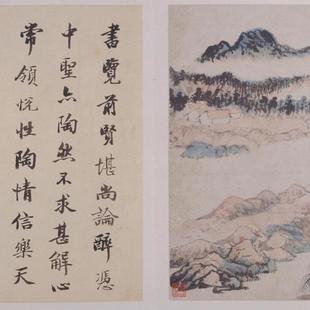 書覽前賢堪尚論醉憑
中聖亦陶然不求甚解心
常領悅性陶情信樂天